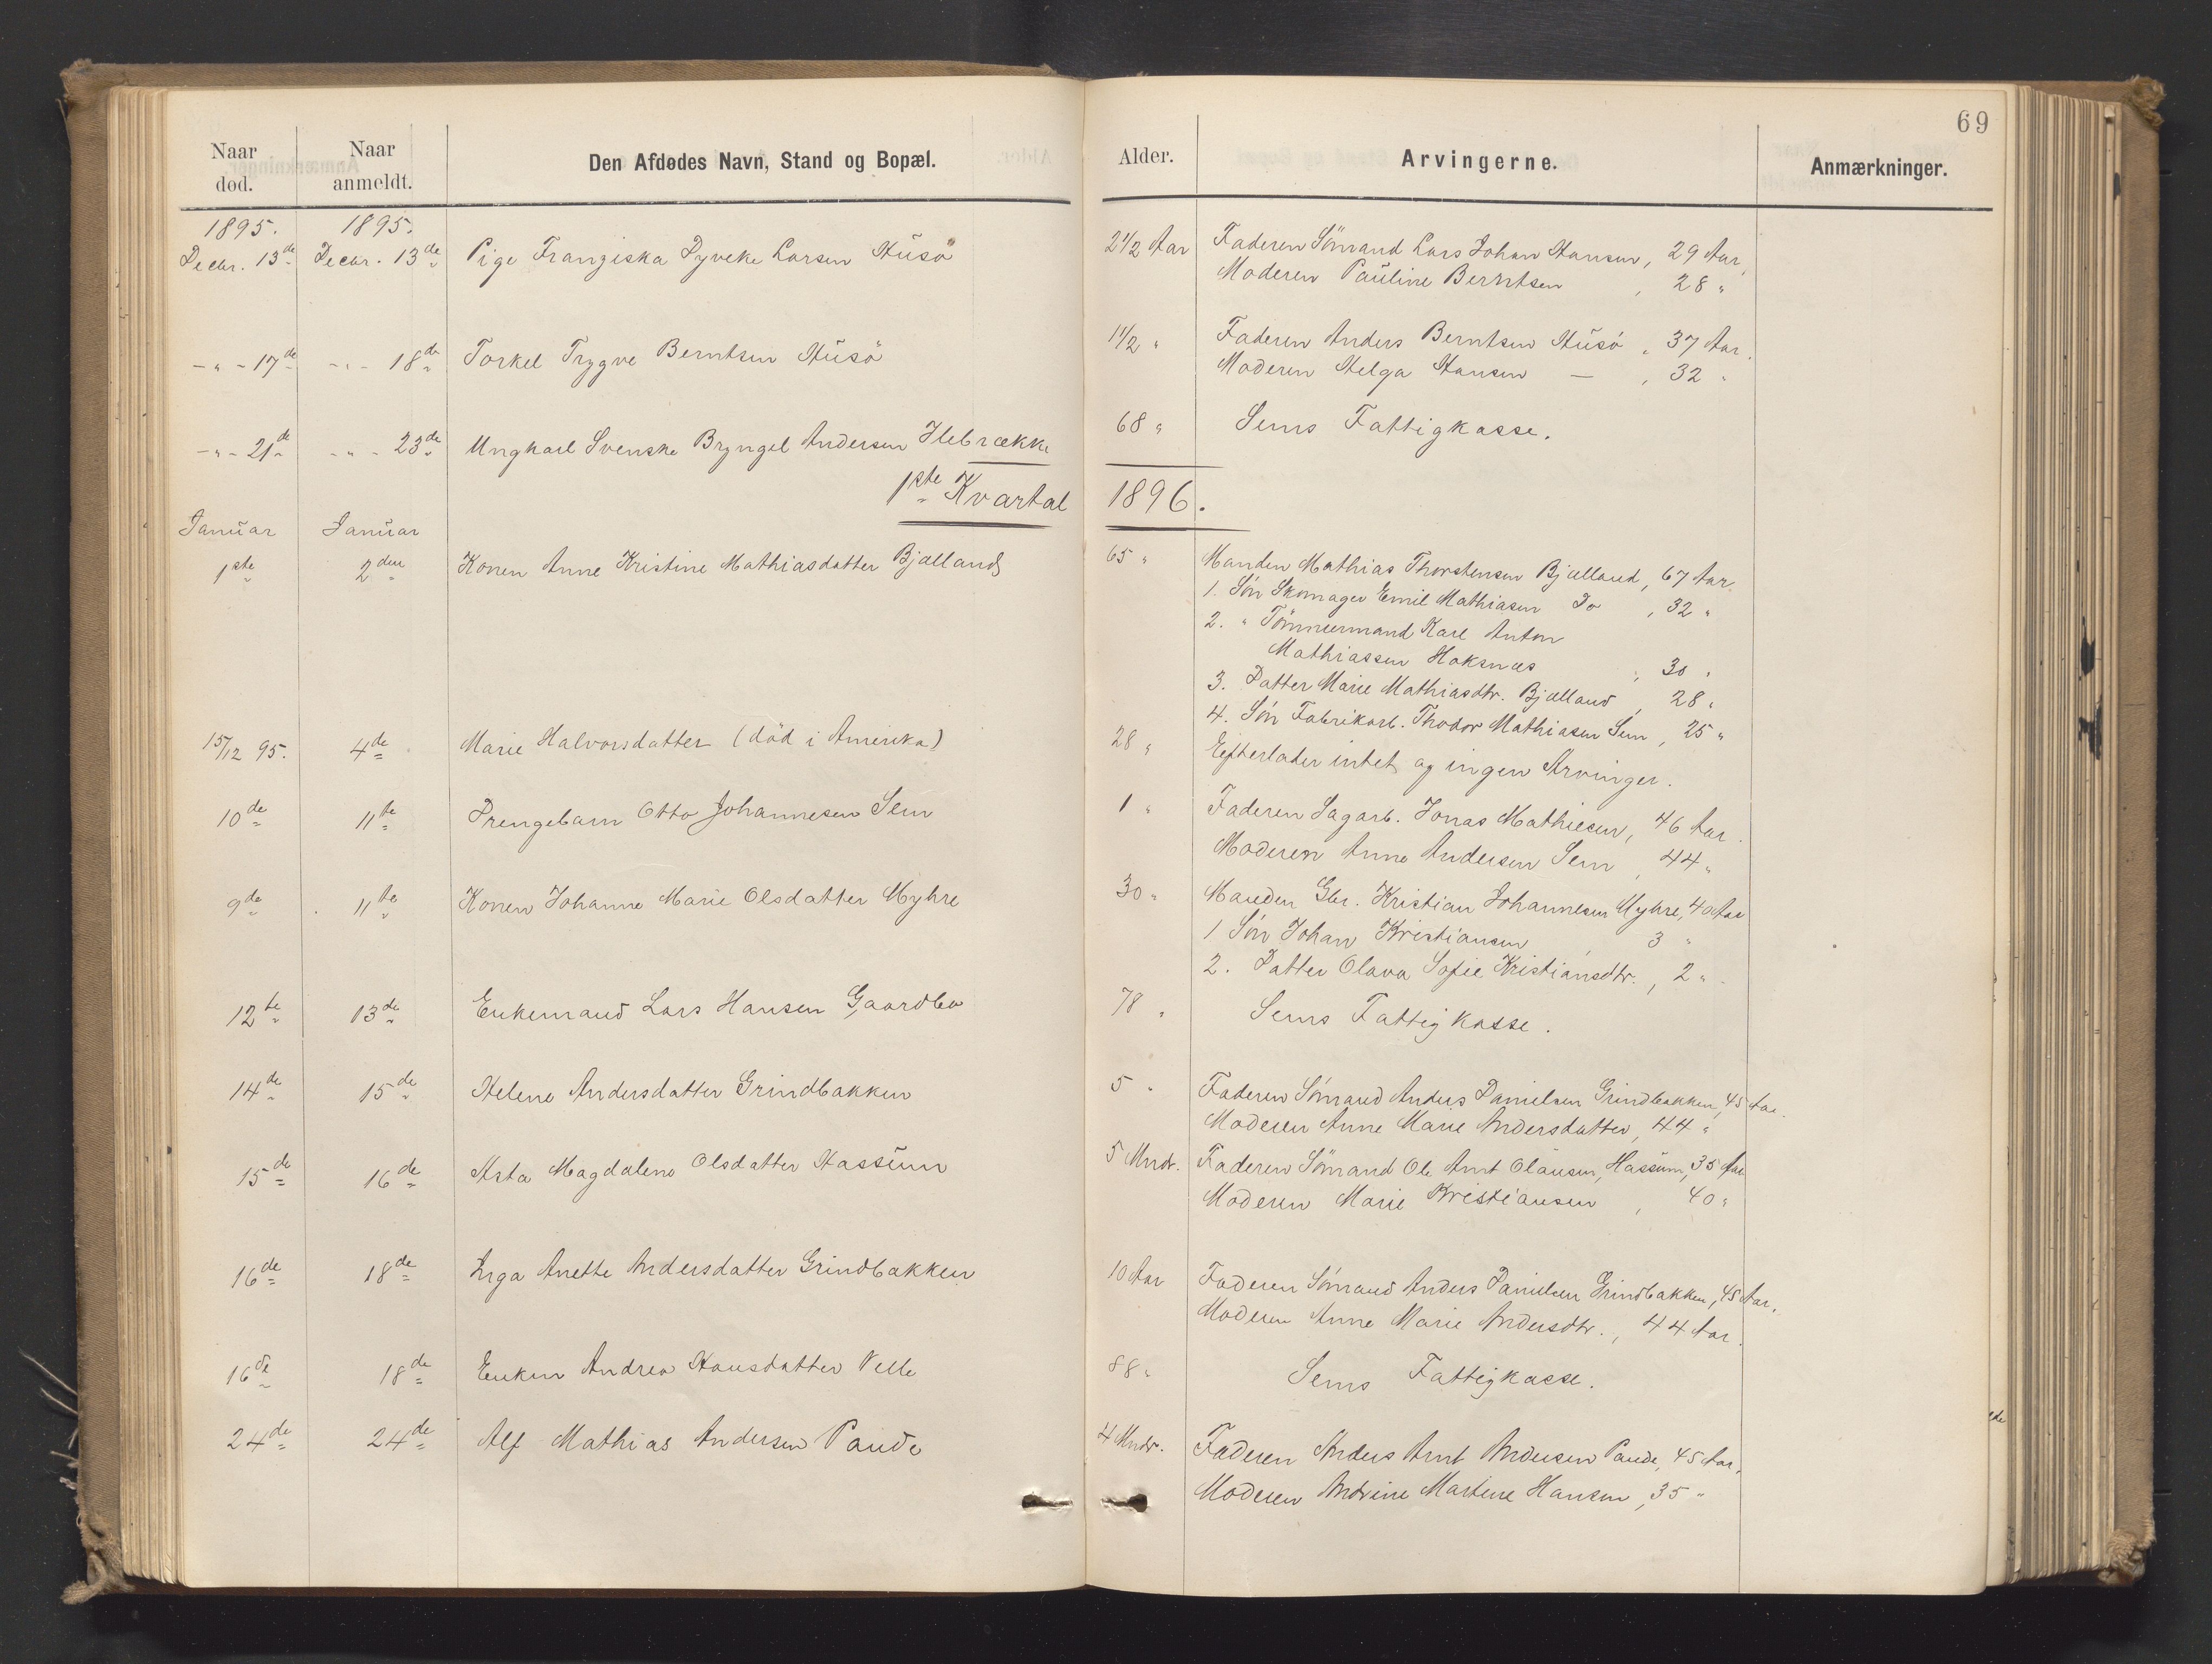 69
Naar død. Naar anmeldt. Den Afdødes Navn, Stand og Bopæl. Alder. Arvingerne. Anmærkninger.
1895. 1895.
Decbr. 13de Decbr. 13de Pige Franziska Dyveke Larsen Husö 2 1/2 Aar Faderen Sömand Lars Johan Hansen, 29 Aar,
Moderen Pauline Berntsen, 28 "
- " - 17de - " - 18de Torkel Trygve Berntsen Husö 1 1/2 " Faderen Anders Berntsen Husö, 37 Aar.
Moderen Helga Hansen — , 32 "
- " - 21de - " - 23de Ungkarl Svenske Bryngel Andersen Ilebrække 68 " Sems Fattigkasse.
1ste Kvartal 1896.
Januar Januar
1ste 2den Konen Anne Kristine Mathiasdatter Bjælland 65 " Manden Mathias Thorstensen Bjælland, 67 Aar.
1. Sön Skomager Emil Mathiasen Do, 32 "
2. " Tömmermand Karl Anton
Mathiassen Hoksnæs, 30 "
3. Datter Marie Mathiasdtr. Bjælland, 28 "
4. Sön Fabrikarb. Thodor Mathiasen Sem, 25 "
15/12 95. 4de Marie Halvorsdatter (död i Amerika) 28 " Efterlader intet og ingen Arvinger.
10de 11te Drengebarn Otto Johannesen Sem 1 " Faderen Sagarb. Jonas Mathiesen, 46 Aar.
Moderen Anne Andersen Sem, 44 "
9de 11te Konen Johanne Marie Olsdatter Myhre 30 " Manden Gbr. Kristian Johannesen Myhre, 40 Aar
1 Sön Johan Kristiansen, 3 "
2. Datter Olava Sofie Kristiansdtr., 2 "
12te 13de Enkemand Lars Hansen Gaardbo 78 " Sems Fattigkasse.
14de 15de Helene Andersdatter Grindbakken 5 " Faderen Sömand Anders Danielsen Grindbakken, 45 Aar.
Moderen Anne Marie Andersdatter, 44 "
15de 16de Asta Magdalene Olsdatter Hassum 5 Mndr. Faderen Sömand Ole Arnt Olausen, Hassum, 35 Aar
Moderen Marie Kristiansen, 40 "
16de 18de Inga Anette Andersdatter Grindbakken 10 Aar Faderen Sömand Anders Danielsen Grindbakken, 45 Aar.
Moderen Anne Marie Andersdtr., 44 Aar.
16de 18de Enken Andrea Hansdatter Velle 88 " Sems Fattigkasse.
24de 24de Alf Mathias Andersen Paude 4 Mndr. Faderen Anders Arnt Andersen Paude, 45 Aar.
Moderen Andrine Martine Hansen, 35 "